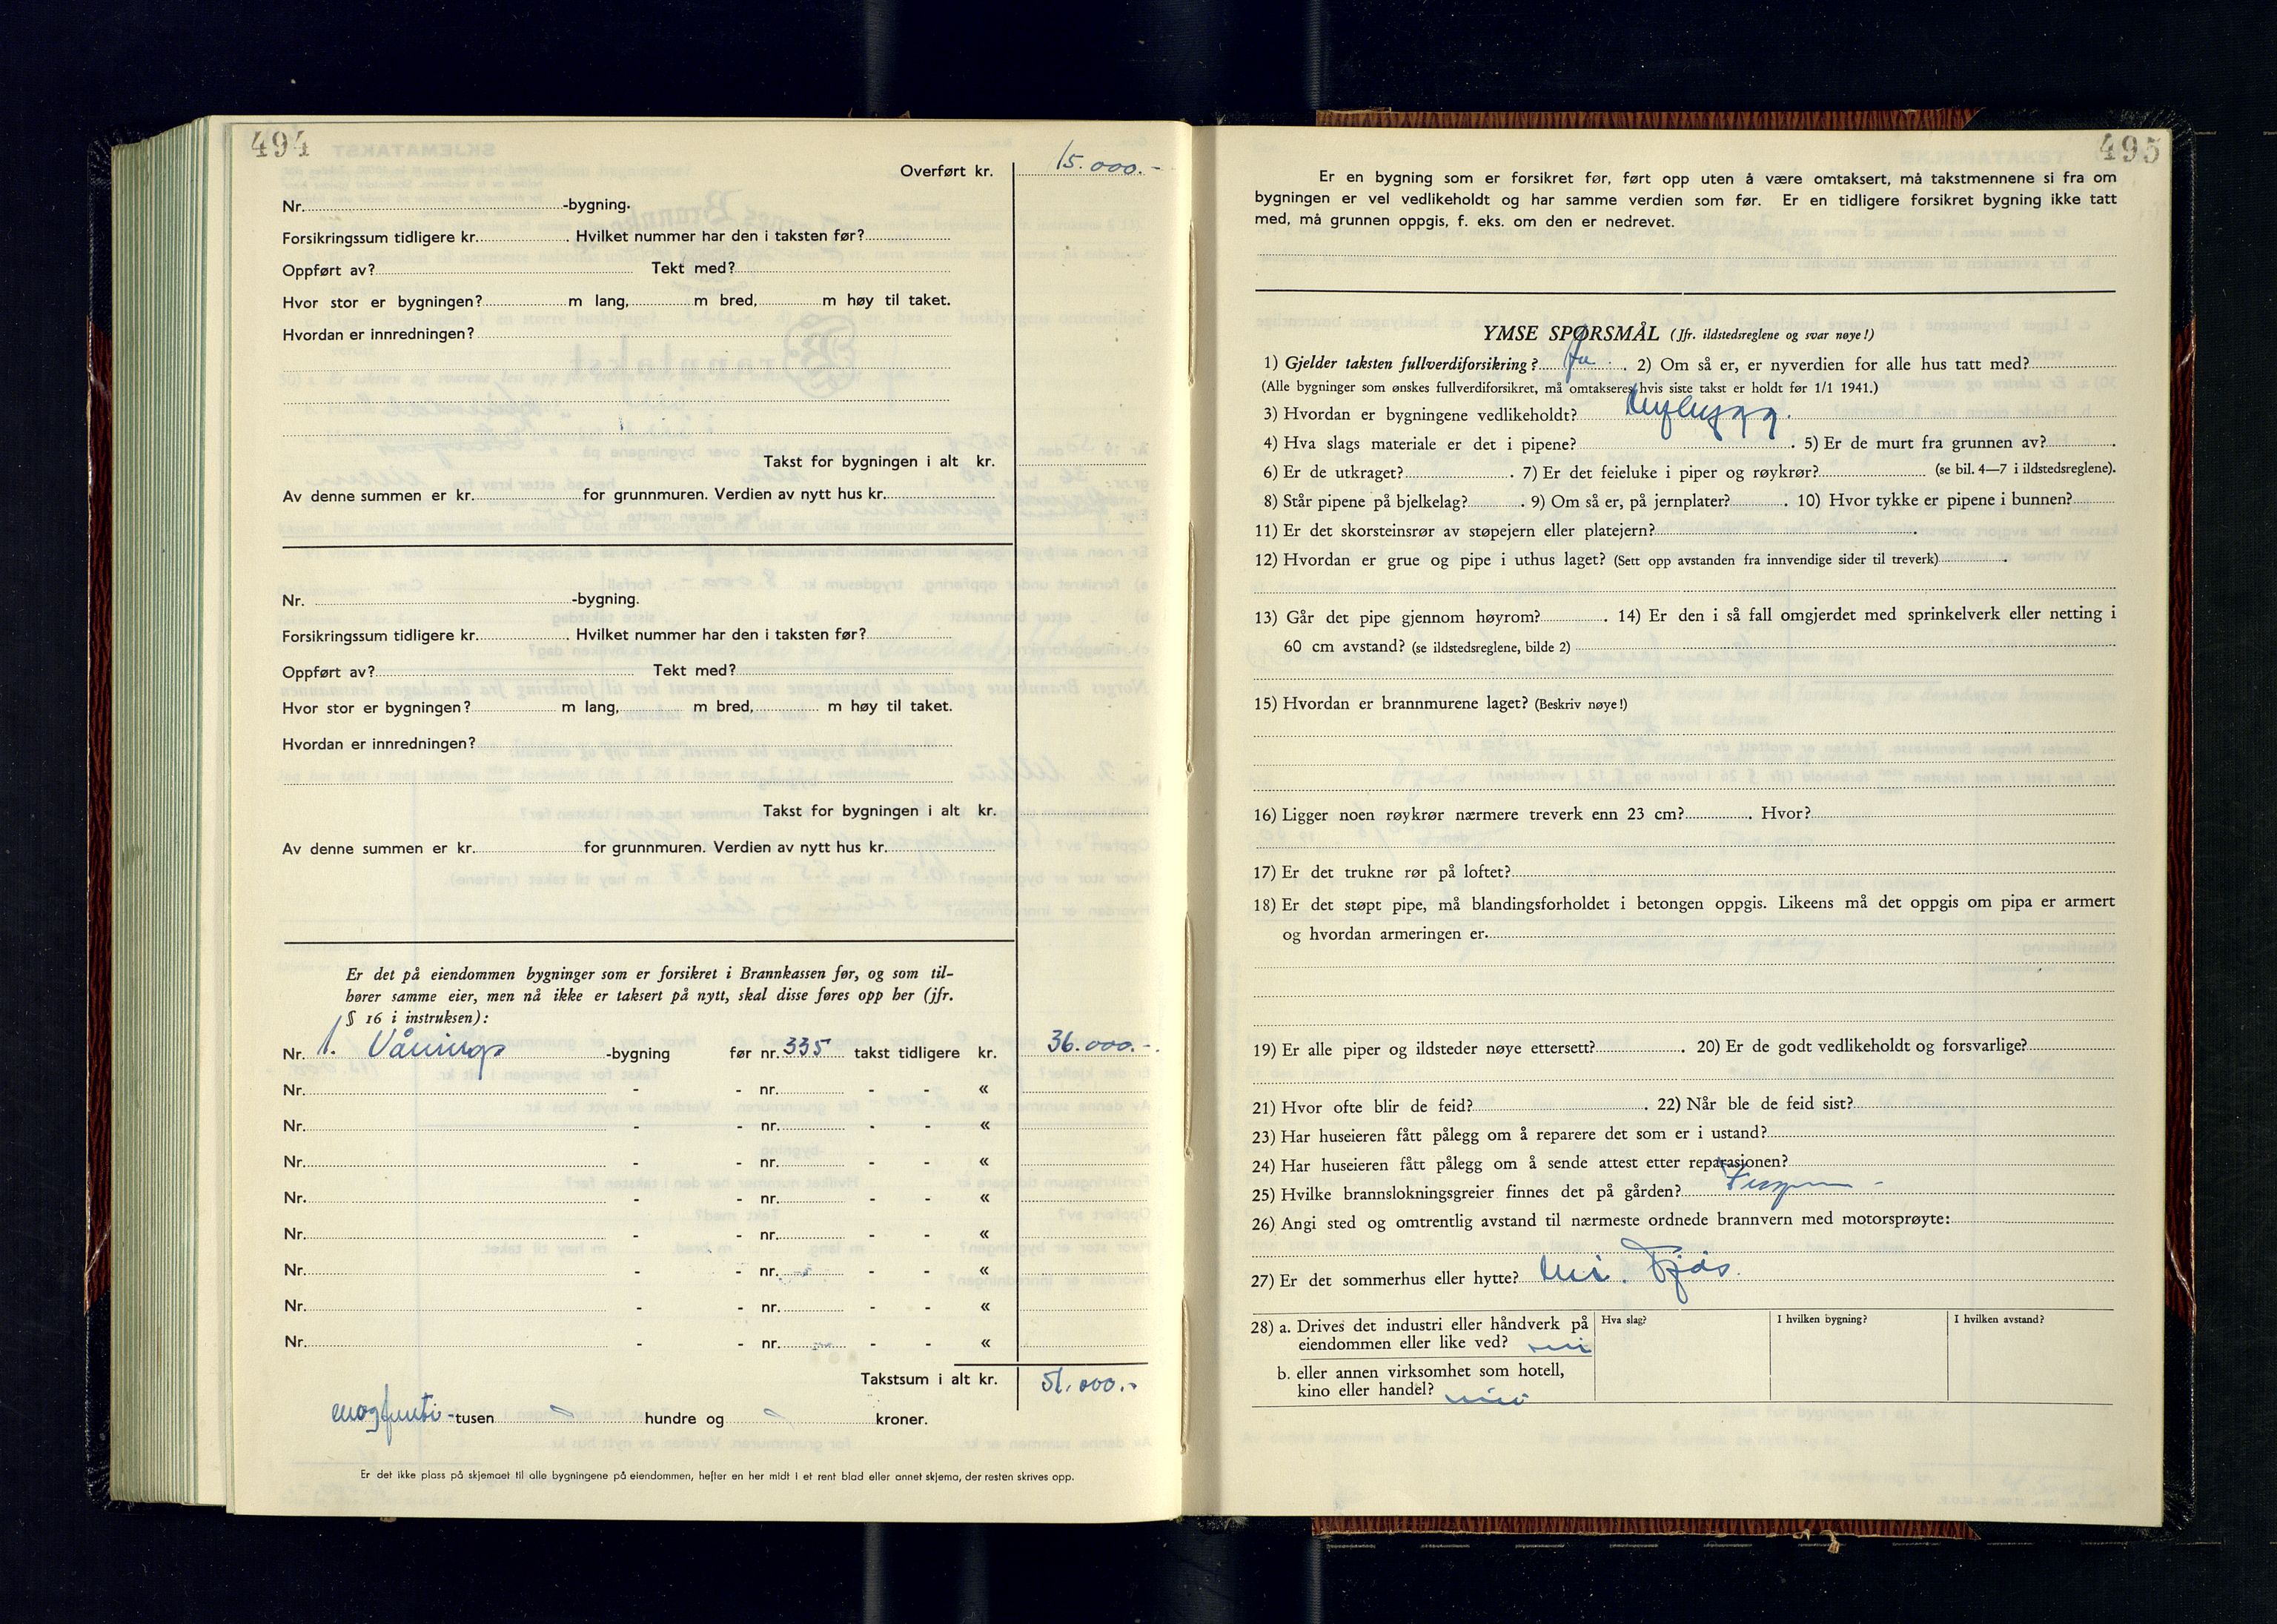 494
Overført kr. 15.000.-
Nr. -bygning.
Forsikringssum tidligere kr. . Hvilket nummer har den i taksten før?
Oppført av? Tekt med?
Hvor stor er bygningen? m lang, m bred, m høy til taket.
Hvordan er innredningen?
Takst for bygningen i alt kr.
Av denne summen er kr. for grunnmuren. Verdien av nytt hus kr.
Nr. -bygning.
Forsikringssum tidligere kr. . Hvilket nummer har den i taksten før?
Oppført av? Tekt med?
Hvor stor er bygningen? m lang, m bred, m høy til taket.
Hvordan er innredningen?
Takst for bygningen i alt kr.
Av denne summen er kr. for grunnmuren. Verdien av nytt hus kr.
Er det på eiendommen bygninger som er forsikret i Brannkassen før, og som til-
hører samme eier, men nå ikke er taksert på nytt, skal disse føres opp her (jfr.
§ 16 i instruksen):
Nr. 1. Vånings -bygning før nr. 335 takst tidligere kr. 36.000.-
Nr. - - nr. - - «
Nr. - - nr. - - «
Nr. - - nr. - - «
Nr. - - nr. - - «
Nr. - - nr. - - «
Nr. - - nr. - - «
Nr. - - nr. - - «
Nr. - - nr. - - «
Takstsum i alt kr. 51.000.-
enogfemti -tusen - hundre og - kroner.
Er det ikke plass på skjemaet til alle bygningene på eiendommen, hefter en her midt i et rent blad eller annet skjema, der resten skrives opp.
495
Er en bygning som er forsikret før, ført opp uten å være omtaksert, må takstmennene si fra om
bygningen er vel vedlikeholdt og har samme verdien som før. Er en tidligere forsikret bygning ikke tatt
med, må grunnen oppgis, f. eks. om den er nedrevet.
YMSE SPØRSMÅL (Jfr. ildstedsreglene og svar nøye!)
1) Gjelder taksten fullverdiforsikring? Ja. 2) Om så er, er nyverdien for alle hus tatt med?
(Alle bygninger som ønskes fullverdiforsikret, må omtakseres hvis siste takst er holdt før 1/1 1941.)
3) Hvordan er bygningene vedlikeholdt? Nybygg.
4) Hva slags materiale er det i pipene? . 5) Er de murt fra grunnen av? .
6) Er de utkraget? . 7) Er det feieluke i piper og røykrør? (se bil. 4—7 i ildstedsreglene).
8) Står pipene på bjelkelag? . 9) Om så er, på jernplater? . 10) Hvor tykke er pipene i bunnen?
11) Er det skorsteinsrør av støpejern eller platejern? .
12) Hvordan er grue og pipe i uthus laget? (Sett opp avstanden fra innvendige sider til treverk) .
13) Går det pipe gjennom høyrom? . 14) Er den i så fall omgjerdet med sprinkelverk eller netting i
60 cm avstand? (se ildstedsreglene, bilde 2)
15) Hvordan er brannmurene laget? (Beskriv nøye!)
16) Ligger noen røykrør nærmere treverk enn 23 cm? . Hvor?
17) Er det trukne rør på loftet?
18) Er det støpt pipe, må blandingsforholdet i betongen oppgis. Likeens må det oppgis om pipa er armert
og hvordan armeringen er.
19) Er alle piper og ildsteder nøye ettersett? . 20) Er de godt vedlikeholdt og forsvarlige?
21) Hvor ofte blir de feid? . 22) Når ble de feid sist?
23) Har huseieren fått pålegg om å reparere det som er i ustand?
24) Har huseieren fått pålegg om å sende attest etter reparasjonen?
25) Hvilke brannslokningsgreier finnes det på gården?
26) Angi sted og omtrentlig avstand til nærmeste ordnede brannvern med motorsprøyte:
27) Er det sommerhus eller hytte? Nei. Fjøs.
28) a. Drives det industri eller håndverk på Hva slag? I hvilken bygning? I hvilken avstand?
eiendommen eller like ved? nei
b. eller annen virksomhet som hotell,
kino eller handel? nei